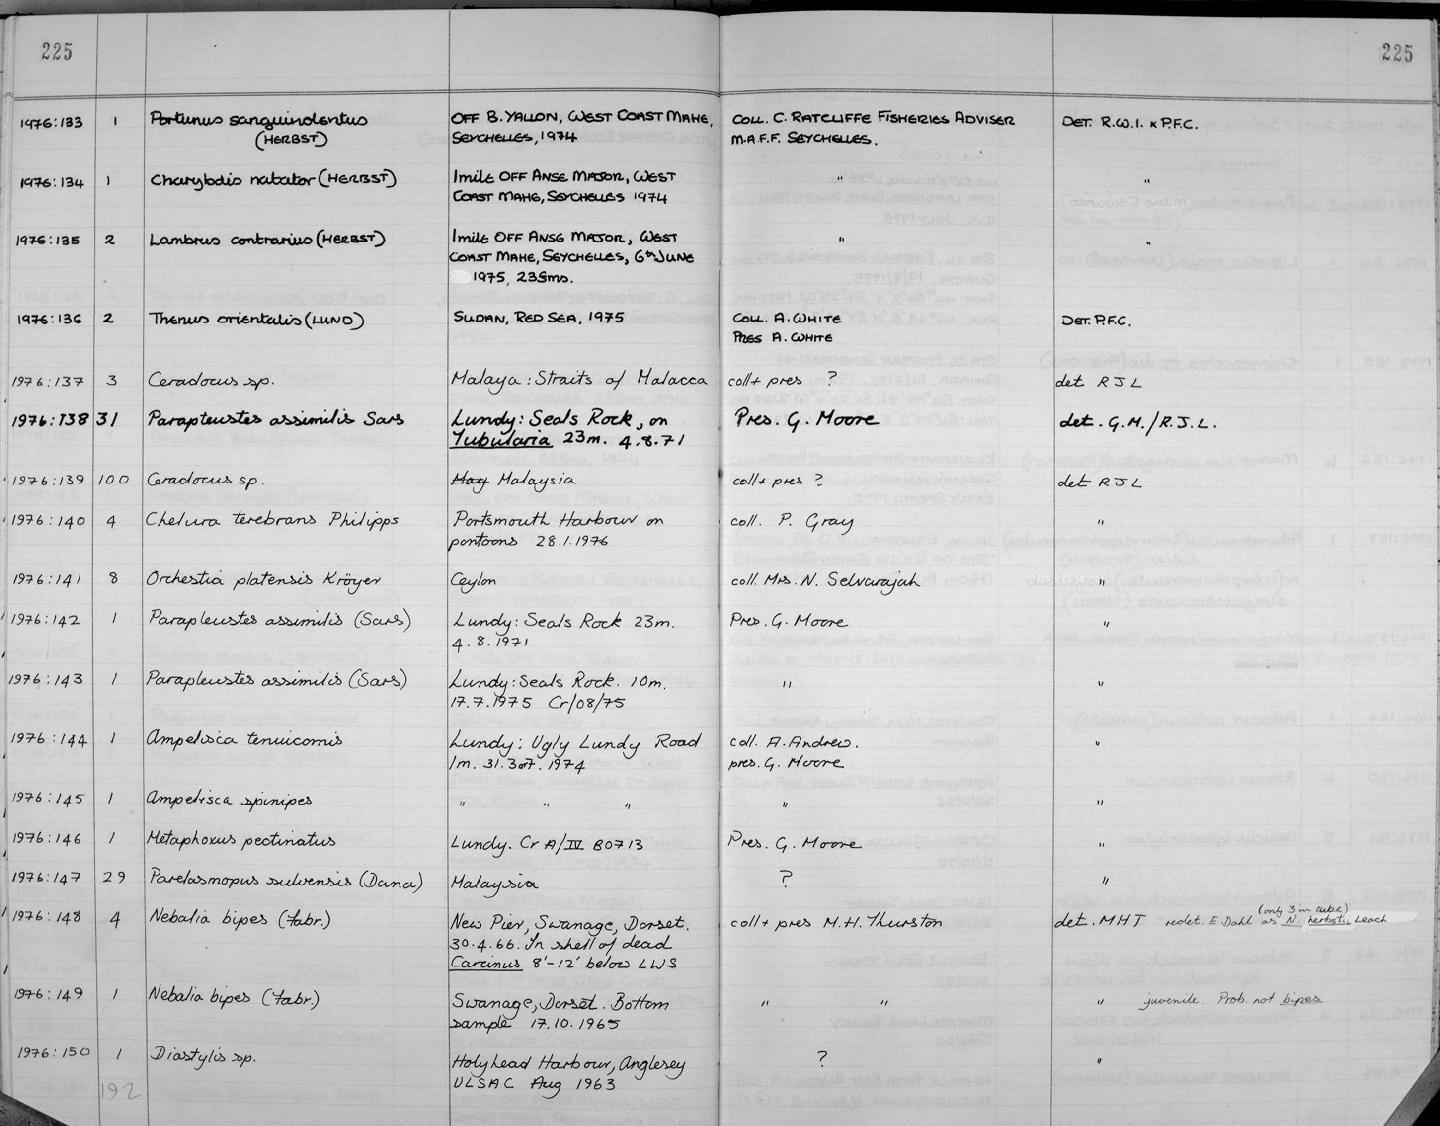 225 225
1976:133 1 Portunus sanguinolentus OFF B. YALLON, WEST COAST MAHE, COLL. C. RATCLIFFE FISHERIES ADVISER DET. R.W.I. & P.F.C.
(HERBST) SEYCHELLES, 1974 M.A.F.F. SEYCHELLES.
1976:134 1 Charybdis natator (HERBST) 1 mile OFF ANSE MAJOR, WEST " "
COAST MAHE, SEYCHELLES 1974
1976:135 2 Lambrus contrarius (HERBST) 1 mile OFF ANSE MAJOR, WEST " "
COAST MAHE, SEYCHELLES, 6th JUNE
1975, 23Sms.
1976:136 2 Thenus orientalis (LUND) SUDAN, RED SEA, 1975 COLL. A. WHITE DET. P.F.C.
PRES A. WHITE
1976:137 3 Ceradocus sp. Malaya: Straits of Malacca coll + pres ? det RJL
1976:138 31 Parapleustes assimilis Sars Lundy: Seals Rock, on Pres. G. Moore det. G.M./R.J.L.
Tubularia 23m. 4.8.71
1976:139 100 Ceradocus sp. May Malaysia coll + pres ? det RJL
1976:140 4 Chelura terebrans Philipps Portsmouth Harbour on coll. P. Gray "
pontoons 28.1.1976
1976:141 8 Orchestia platensis Kröyer Ceylon coll. Mrs. N. Selvarajah "
1976:142 1 Parapleustes assimilis (Sars) Lundy: Seals Rock 23m. Pres. G. Moore "
4.8.1971
1976:143 1 Parapleustes assimilis (Sars) Lundy: Seals Rock. 10m. " "
17.7.1975 Cr/08/75
1976:144 1 Ampelisca tenuicornis Lundy: Ugly Lundy Road coll. A. Andrew. "
1m. 1974 pres. G. Moore
1976:145 1 Ampelisca spinipes " " " " "
1976:146 1 Metaphoxus pectinatus Lundy. Cr A/IV B0713 Pres. G. Moore "
1976:147 29 Parelasmopus suluensis (Dana) Malaysia ? "
1976:148 4 Nebalia bipes (Fabr.) New Pier, Swanage, Dorset. coll + pres M.H. Thurston det. MHT redet. E Dahl as N. herbstii Leach
(only 3 in tube)
30.4.66. In shell of dead
Carcinus 8'-12' below LWS
1976:149 1 Nebalia bipes (Fabr.) Swanage, Dorset. Bottom " " " juvenile. Prob. not bipes
sample 17.10.1965
1976:150 1 Diastylis sp. Holyhead Harbour, Anglesey ? "
192 ULSAC Aug 1963